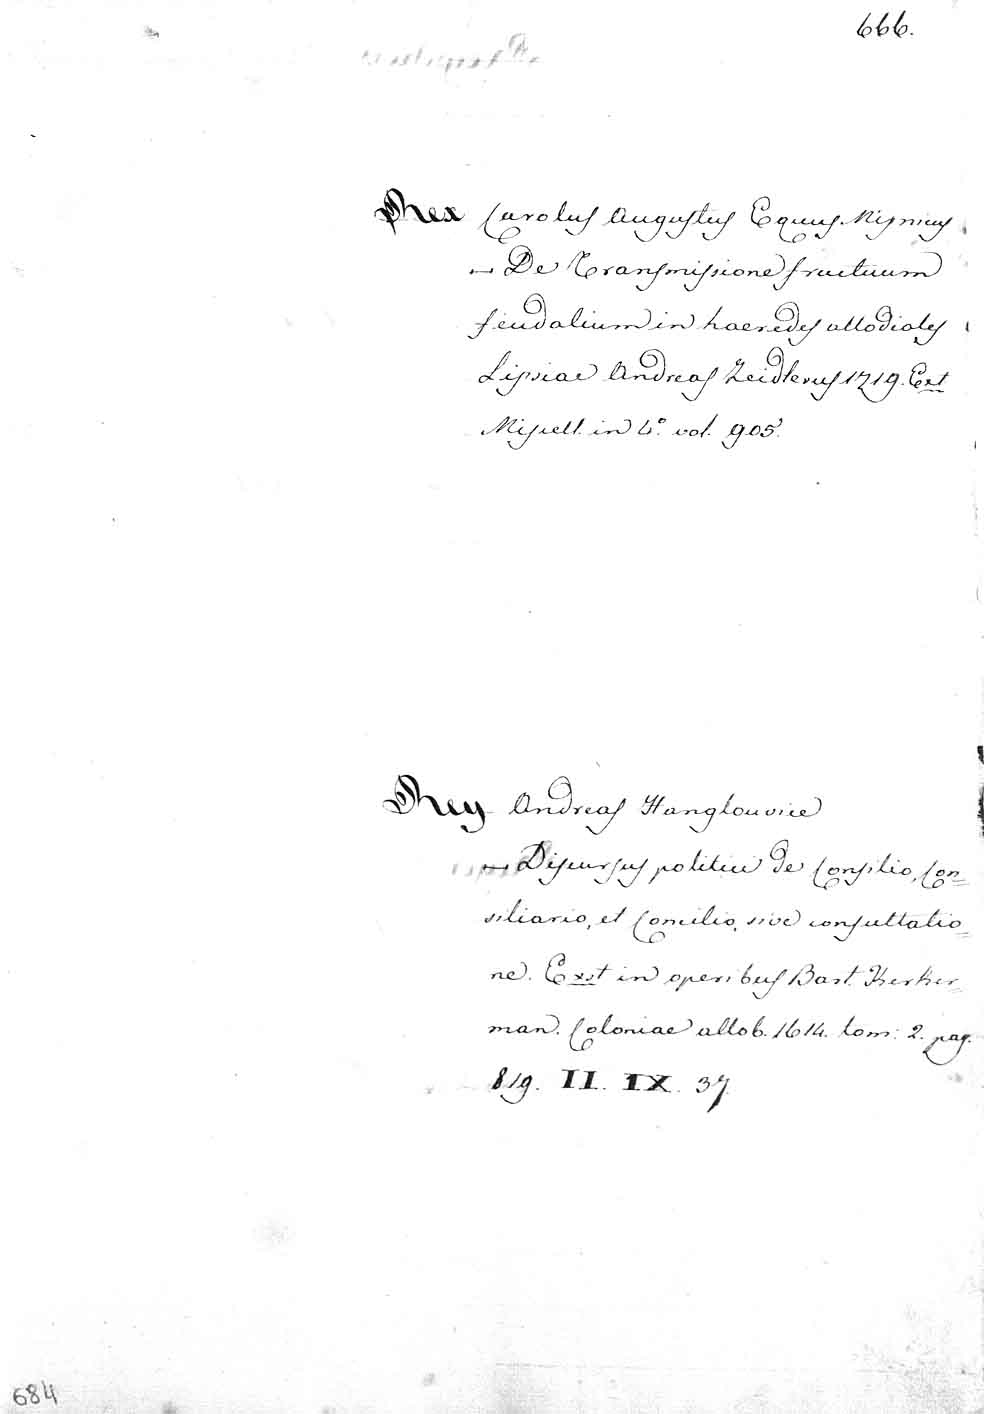 666.
Rex Carolus Augustus Eques Misnicus
— De Transmissione fructuum
feudalium in haeredes allodiales
Lipsiae Andreas Zeidlerus 1719. Ext
Miscell. in 4° vol. 905.
Rey Andreas Hanglouvice
— Discursus politici de Consilio, Con=
siliario, et Concilio, sive consultatio=
ne. Exst in operibus Bart. Kerker=
man. Coloniae allob. 1614. tom: 2. pag.
819. II. IX. 37.
684